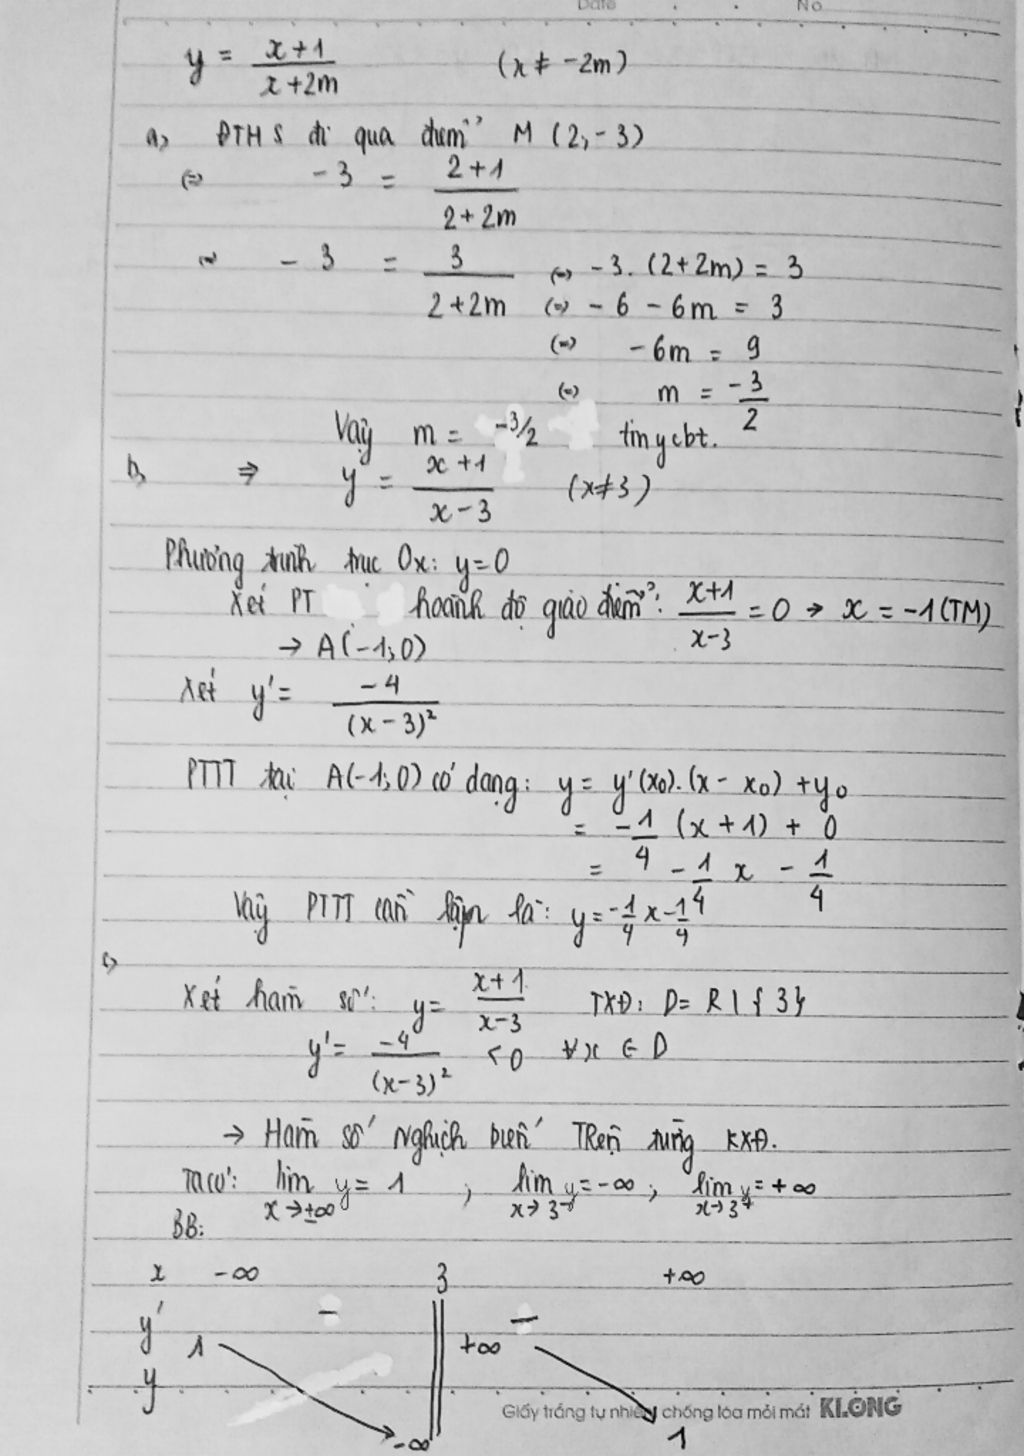 Date No
y = (x+1)/(x+2m) (x ≠ -2m)
a, ĐTHS đi qua điểm M (2, -3)
⇔ -3 = (2+1)/(2+2m)
⇔ -3 = 3/(2+2m) ⇔ -3. (2+2m) = 3
⇔ -6 - 6m = 3
⇔ -6m = 9
⇔ m = -3/2
Vậy m = -3/2 tm ycbt.
b, ⇒ y = (x+1)/(x-3) (x≠3)
Phương trình trục Ox: y=0
Xét PT hoành độ giao điểm: (x+1)/(x-3) = 0 → x = -1 (TM)
→ A(-1;0)
Xét y' = -4/(x-3)²
PTTT tại A(-1;0) có dạng: y = y'(x₀).(x - x₀) + y₀
= -1/4 (x+1) + 0
= -1/4 x - 1/4
Vậy PTTT cần lập là: y = -1/4 x - 1/4
c,
Xét hàm số: y = (x+1)/(x-3) TXĐ: D = R \ {3}
y' = -4/(x-3)² < 0 ∀x ∈ D
→ Hàm số nghịch biến TRên từng KXĐ.
Ta có: lim x→±∞ y = 1 ; lim x→3⁻ y = -∞ ; lim x→3⁺ y = +∞
BB:
x -∞ 3 +∞
y' - -
1 +∞
y
-∞ 1
Giấy trắng tự nhiên chống lóa mỏi mắt KLONG